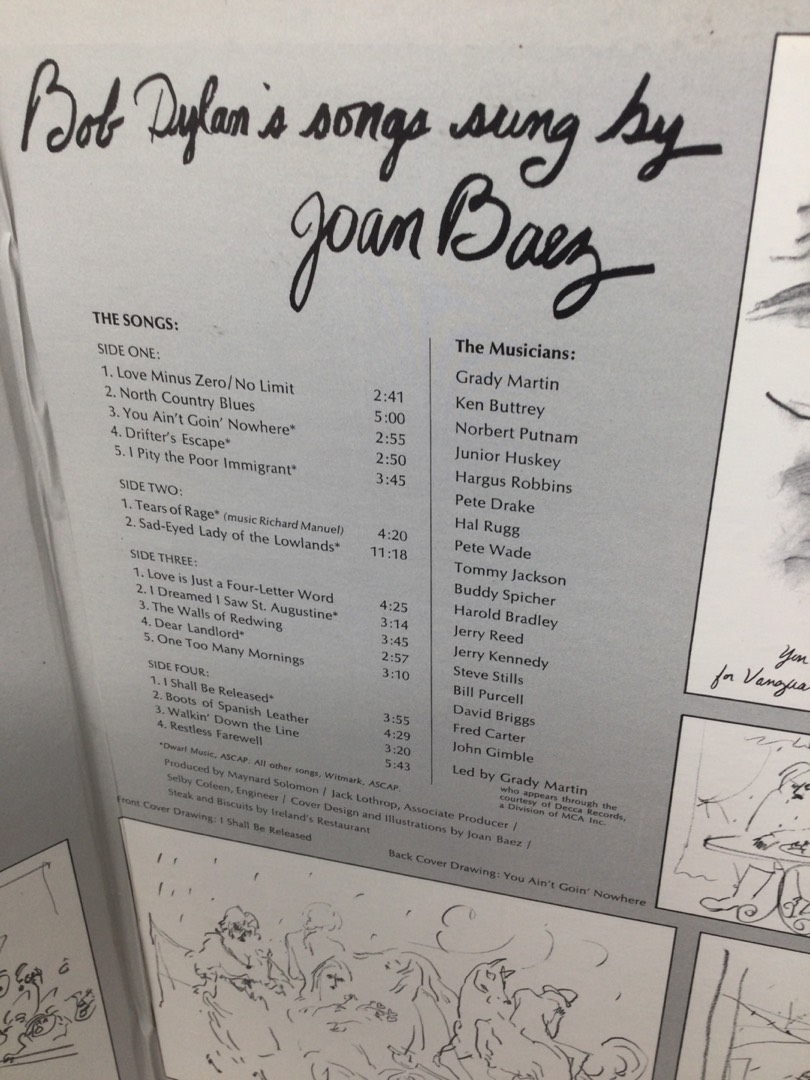 Bob Dylan's songs sung by
Joan Baez
THE SONGS:
SIDE ONE:
1. Love Minus Zero/No Limit 2:41
2. North Country Blues 5:00
3. You Ain't Goin' Nowhere* 2:55
4. Drifter's Escape* 2:50
5. I Pity the Poor Immigrant* 3:45
SIDE TWO:
1. Tears of Rage* (music Richard Manuel) 4:20
2. Sad-Eyed Lady of the Lowlands* 11:18
SIDE THREE:
1. Love is Just a Four-Letter Word 4:25
2. I Dreamed I Saw St. Augustine* 3:14
3. The Walls of Redwing 3:45
4. Dear Landlord* 2:57
5. One Too Many Mornings 3:10
SIDE FOUR:
1. I Shall Be Released* 3:55
2. Boots of Spanish Leather 4:29
3. Walkin' Down the Line 3:20
4. Restless Farewell 5:43
*Dwarf Music, ASCAP. All other songs, Witmark, ASCAP.
Produced by Maynard Solomon / Jack Lothrop, Associate Producer /
Selby Cofeen, Engineer / Cover Design and Illustrations by Joan Baez /
Steak and Biscuits by Ireland's Restaurant
Front Cover Drawing: I Shall Be Released
Back Cover Drawing: You Ain't Goin' Nowhere
The Musicians:
Grady Martin
Ken Buttrey
Norbert Putnam
Junior Huskey
Hargus Robbins
Pete Drake
Hal Rugg
Pete Wade
Tommy Jackson
Buddy Spicher
Harold Bradley
Jerry Reed
Jerry Kennedy
Steve Stills
Bill Purcell
David Briggs
Fred Carter
John Gimble
Led by Grady Martin
who appears through the
courtesy of Decca Records,
a Division of MCA Inc.
for